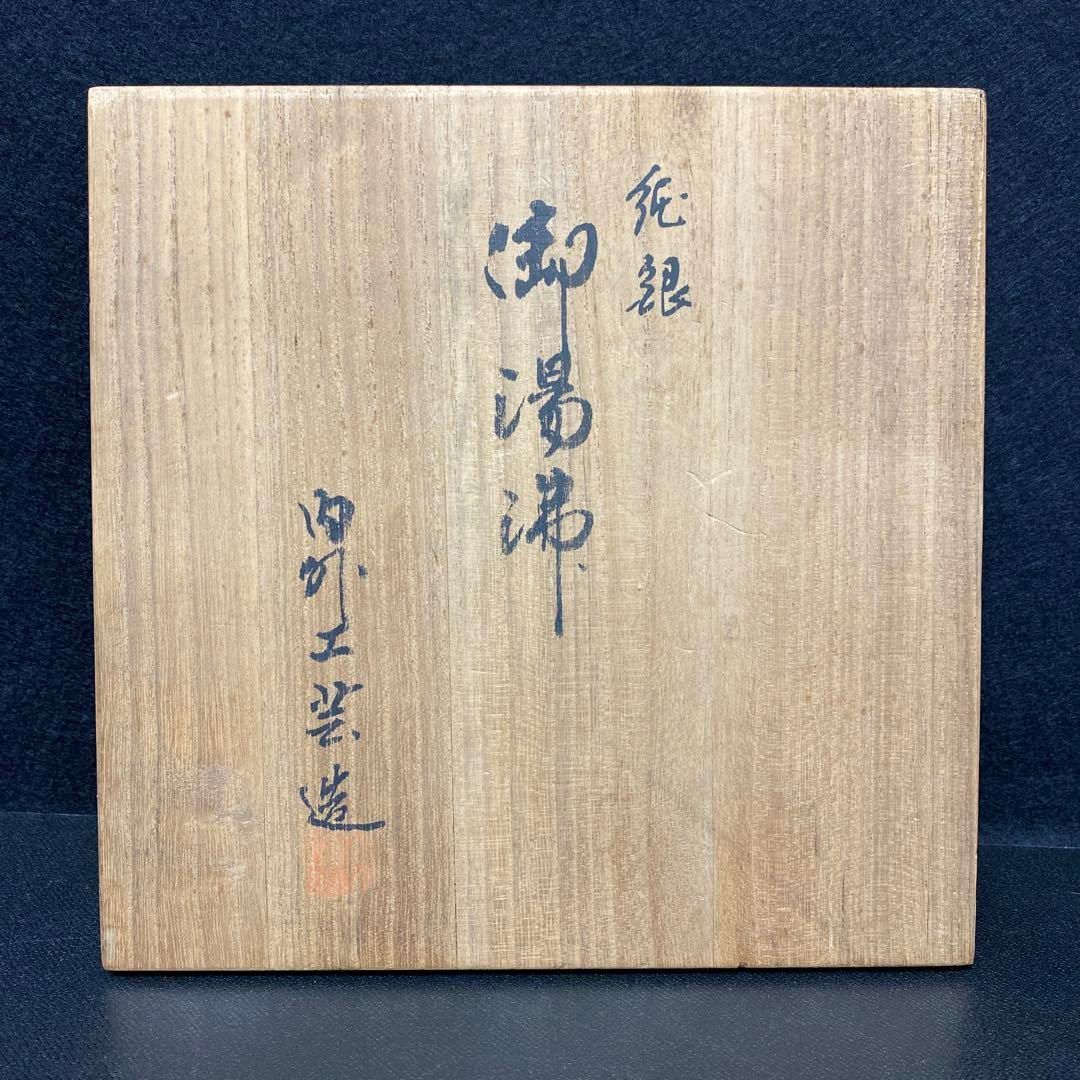 純銀
御湯沸
内外工芸造